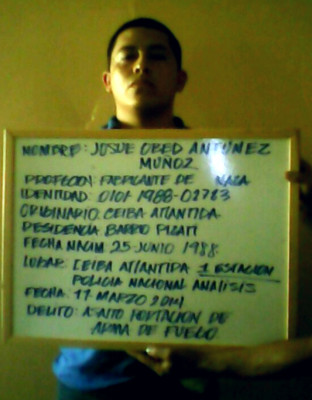 NOMBRE: JOSUE OBED ANTUNEZ
MUÑOZ
PROFECION: FABRICANTE DE
IDENTIDAD: 0101 1988-02783
ORIGINARIO: CEIBA ATLANTIDA.
RESIDENCIA: BARRIO
FECHA NACIM. 25-JUNIO 1988.
LUGAR: CEIBA ATLANTIDA 1 ESTACION
POLICIA NACIONAL ANALISIS
FECHA: MARZO
DELITO: PORTACION DE
ARMA DE FUEGO